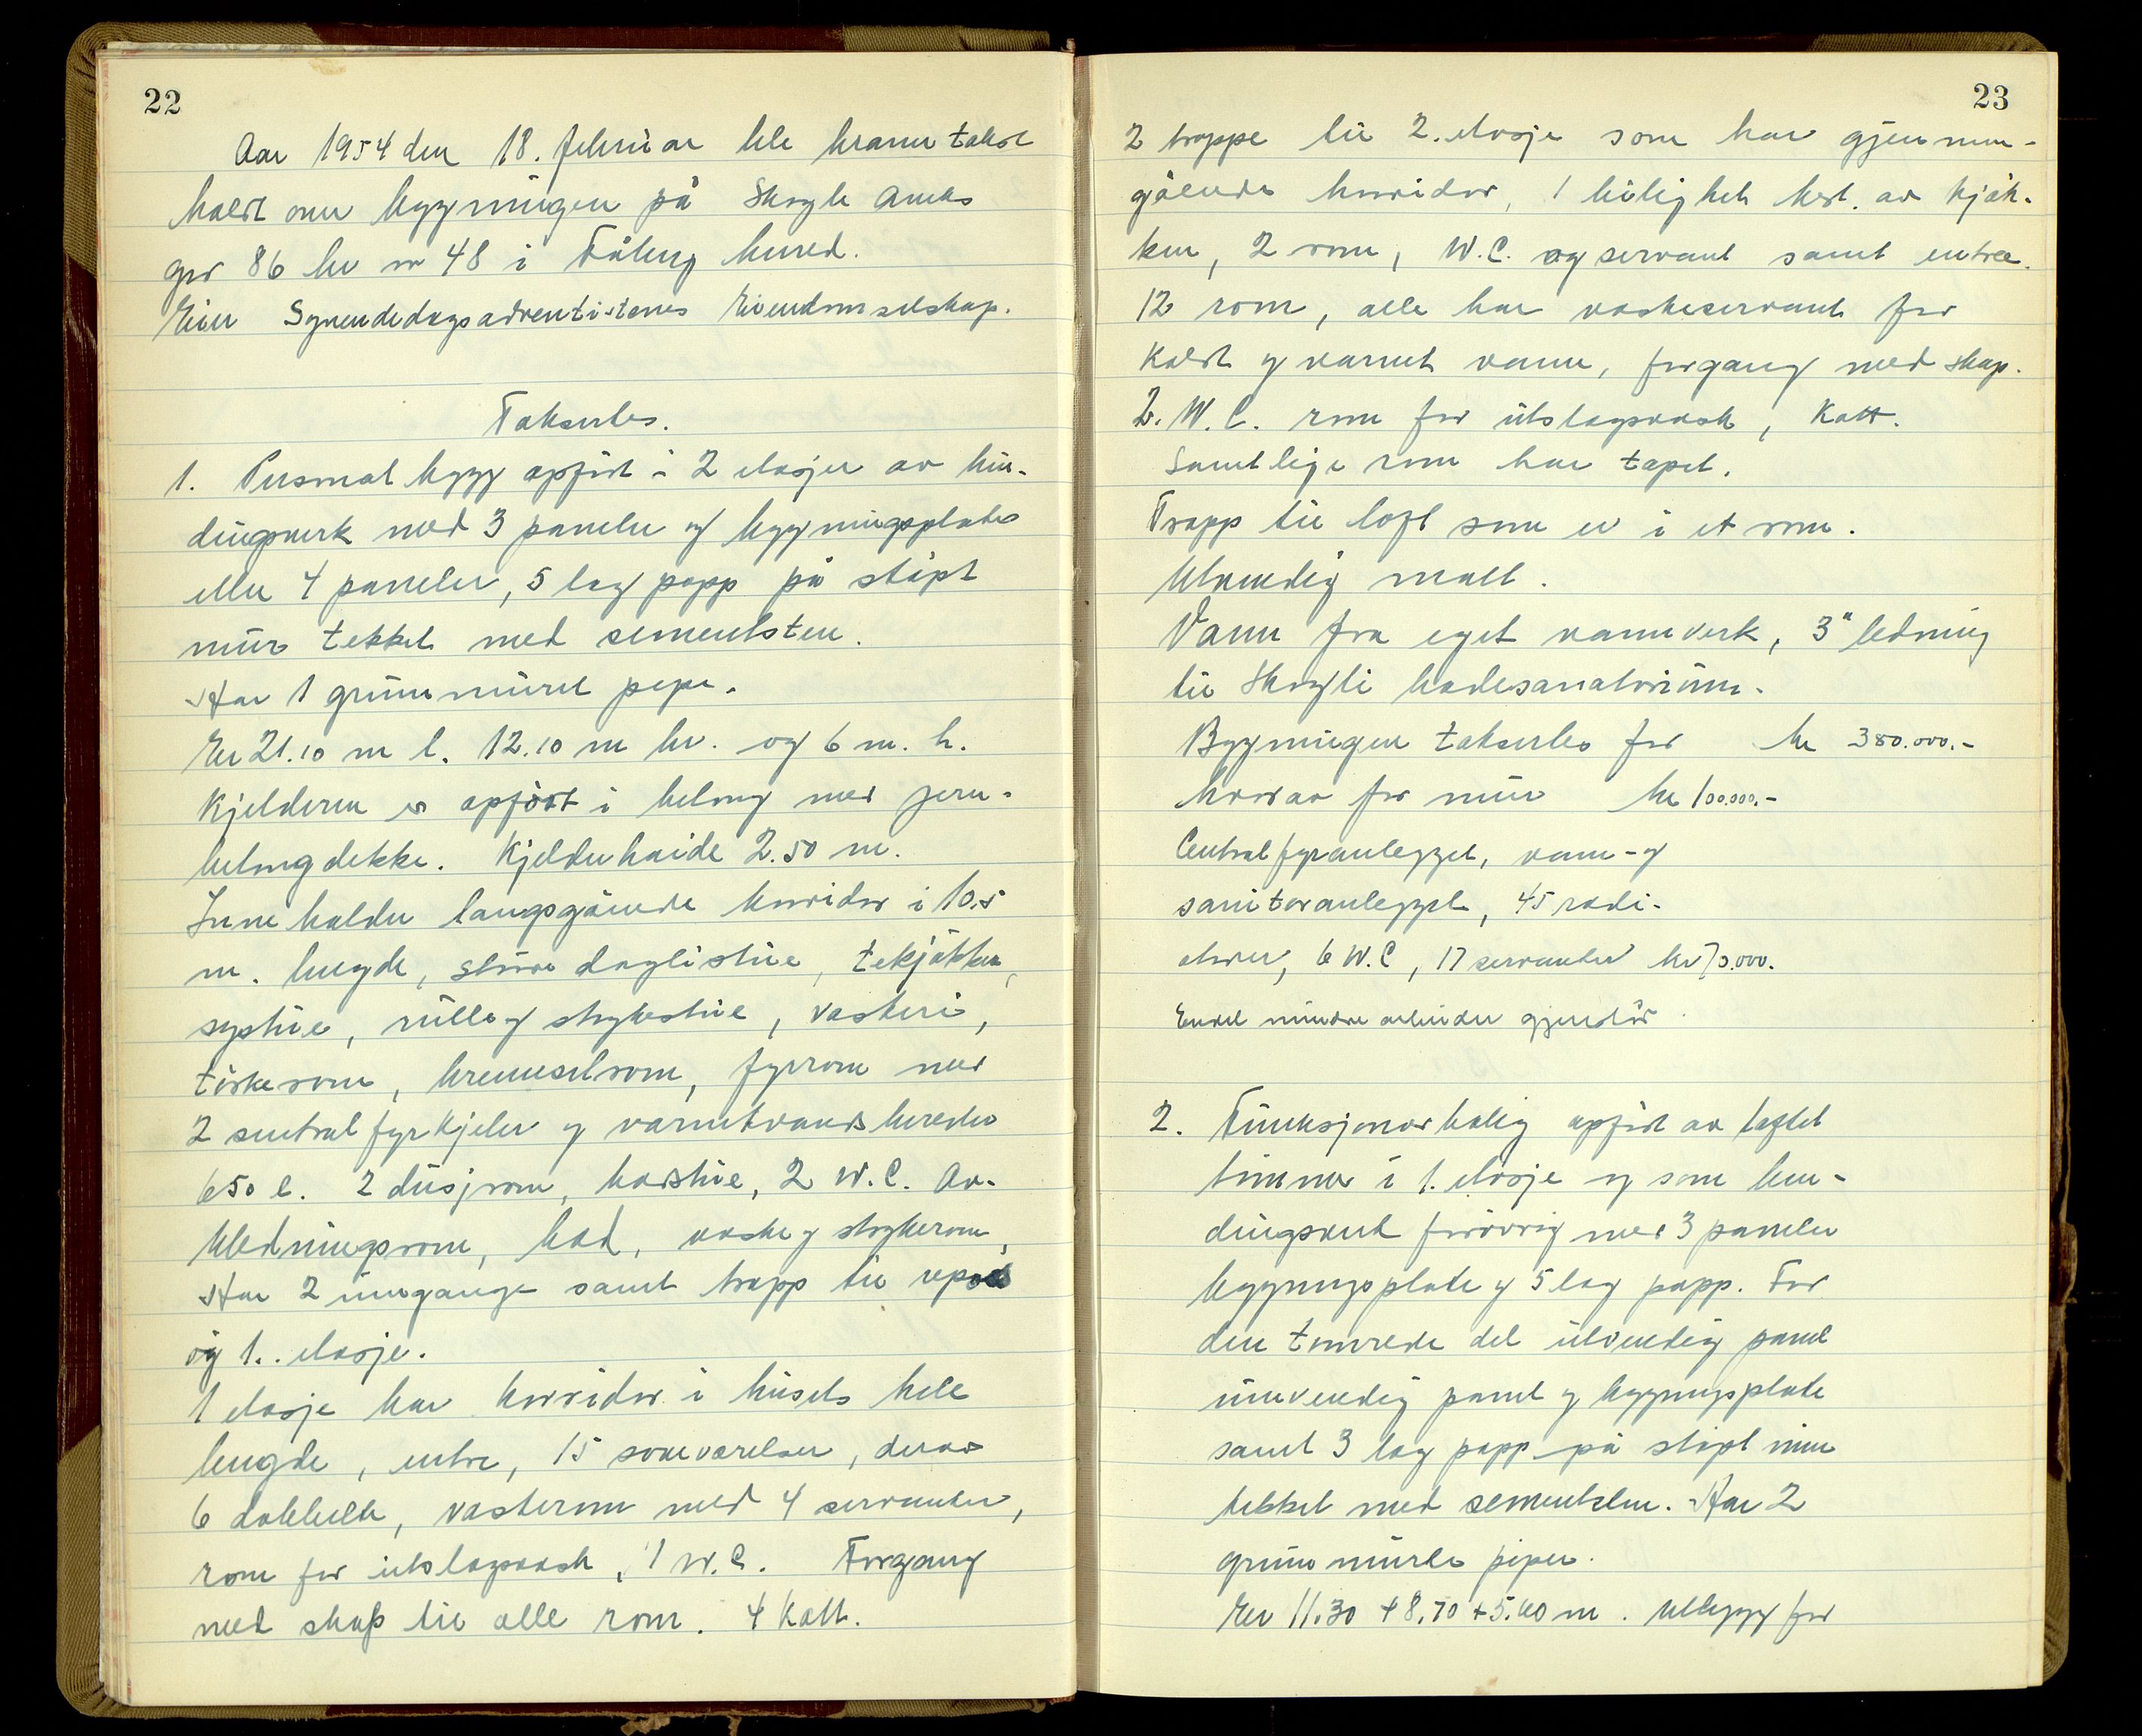 22
Aar 1954 den 18. februar ble branntakst
holdt over bygningen på Skogli Aneks
gnr 86 br nr 48 i Fåberg herred.
Eier Syvendedagsadventistenes Eiendomsselskap.
Takserbes.
1. Personal bygg opført i 2 etasjer av bin-
dingverk med 3 paneler og bygningsplate
eller 4 paneler, 5 lag papp på støpt
mur tekket med sementsten.
Har 1 grunnmuret pipe.
Er 21.10 m l. 12.10 m br. og 6 m. h.
Kjelderen er opført i betong med jern-
betongdekke. Kjelderhøide 2.50 m.
Inneholder langsgående korridor i 10.5
m. lengde, større daglistue, tekjøkken,
systue, rulle og strykestue, vaskeri,
tørkerom, brenselsrom, fyrrom med
2 sentralfyrkjeler og varmtvandsbereder
650 l. 2 dusjrom, badstue, 2 W.C. Av-
kledningsrom, bad, vaske og strykerom,
Har 2 innganger samt trapp til repos
og 1. etasje.
1 etasje har korridor i husets hele
lengde, entre, 15 soveværelser, derav
6 dobbelte, vaskerom med 4 servanter,
rom for utslagsvask, 1 W.C. Forgang
med skap til alle rom. 4 Kott.
23
2 trappe til 2. etasje som har gjennem-
gående korridor, 1 leilighet best. av kjøk-
ken, 2 rom, W.C. og servant samt entree.
12 rom, alle har vaskeservant for
Koldt og varmt vann, forgang med skap.
2. W.C. rom for utslagsvask, Kott.
Samtlige rom har tapet.
Trapp til loft som er i et rom.
Utvendig malt.
Vann fra eget vannverk, 3" ledning
til Skogli badesanatorium.
Bygningen takserbes for kr 380.000.-
hvorav for mur kr 100.000.-
Centralfyranlegget, vann- og
sanitæranlegget, 45 radi-
atorer, 6 W.C, 17 servanter kr 70.000.
Endel mindre arbeider gjenstår
2. Funksjonærbolig opført av laftet
tømmer i 1. etasje og som bin-
dingsverk forøvrig med 3 paneler
bygningsplate og 5 lag papp. For
den tømrede del utvendig panel
innvendig panel og bygningsplate
samt 3 lag papp på støpt mur
tekket med sementsten. Har 2
grunnmurte piper.
Er 11.30 + 8.70 + 5.40 m. Utbygg for